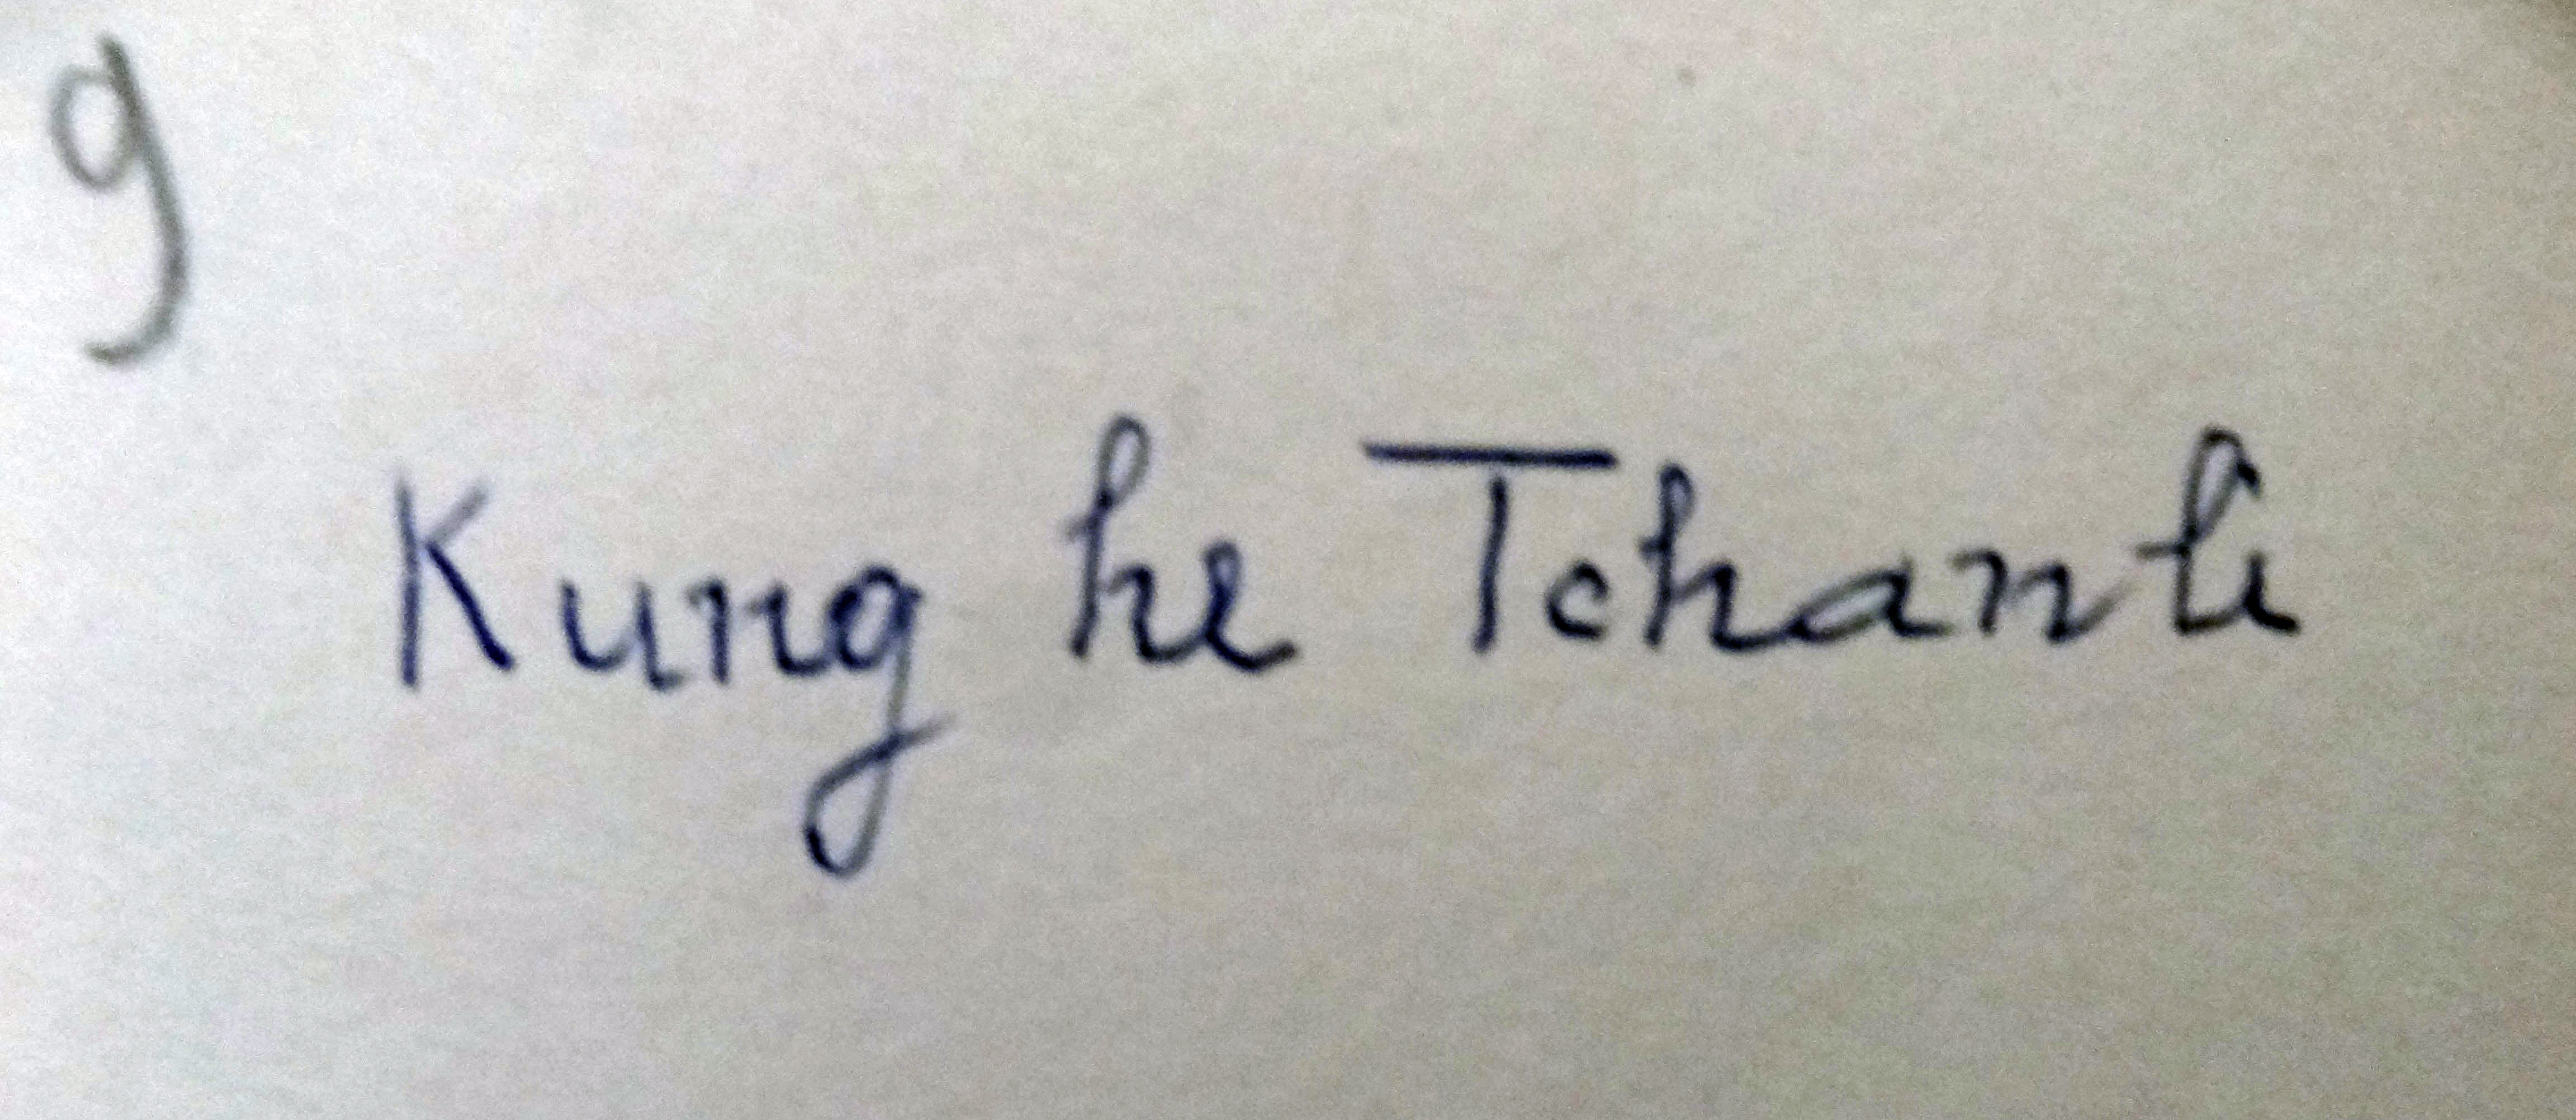 9
Kung he Tchanti